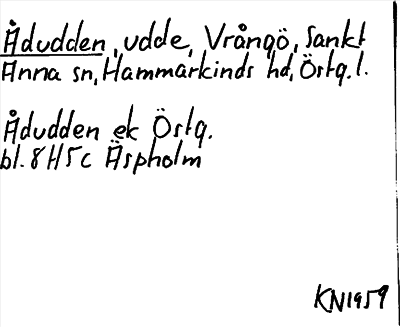 Ådudden, udde, Vrångö, Sankt
Anna sn, Hammarkinds hd, Östg. l.
Ådudden ek Östg.
bl. 8H5c Äspholm
KN1959